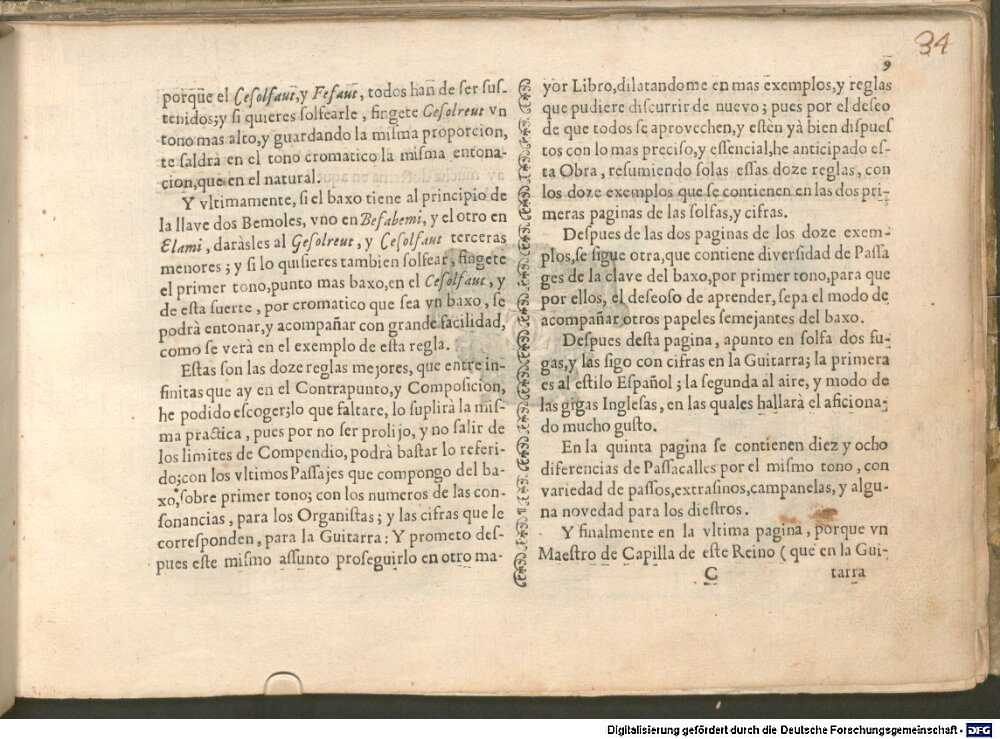 34
9
porque el Cesolfaut,y Fefaut, todos han de ser sus-
tenidos;y si quieres solfearle, fingete Gesolreut vn
tono mas alto,y guardando la misma proporcion,
te saldrà en el tono cromatico la misma entona-
cion,que en el natural.
Y vltimamente, si el baxo tiene al principio de
la llave dos Bemoles, vno en Befabemi, y el otro en
Elami, daràsles al Gesolreut, y Cesolfaut terceras
menores; y si lo quisieres tambien solfear, fingete
el primer tono,punto mas baxo,en el Cesolfaut, y
de esta suerte, por cromatico que sea vn baxo, se
podrà entonar,y acompañar con grande facilidad,
como se verà en el exemplo de esta regla.
Estas son las doze reglas mejores, que entre in-
finitas que ay en el Contrapunto,y Composicion,
he podido escoger;lo que faltare, lo suplirà la mis-
ma practica, pues por no ser prolijo, y no salir de
los limites de Compendio, podrà bastar lo referi-
do;con los vltimos Passajes que compongo del ba-
xo,sobre primer tono; con los numeros de las con-
sonancias, para los Organistas; y las cifras que le
corresponden, para la Guitarra: Y prometo des-
pues este mismo assunto proseguirlo en otro ma-
yor Libro,dilatandome en mas exemplos,y reglas
que pudiere discurrir de nuevo; pues por el deseo
de que todos se aprovechen,y estèn yà bien dispues
tos con lo mas preciso,y essencial,he anticipado es-
ta Obra, resumiendo solas essas doze reglas, con
los doze exemplos que se contienen en las dos pri-
meras paginas de las solfas,y cifras.
Despues de las dos paginas de los doze exem-
plos,se sigue otra,que contiene diversidad de Passa
ges de la clave del baxo,por primer tono,para que
por ellos, el deseoso de aprender, sepa el modo de
acompañar otros papeles semejantes del baxo.
Despues desta pagina, apunto en solfa dos fu-
gas,y las sigo con cifras en la Guitarra; la primera
es al estilo Español; la segunda al aire, y modo de
las gigas Inglesas, en las quales hallarà el aficiona-
do mucho gusto.
En la quinta pagina se contienen diez y ocho
diferencias de Passacalles por el mismo tono, con
variedad de passos,extrasinos,campanelas, y algu-
na novedad para los diestros.
Y finalmente en la vltima pagina, porque vn
Maestro de Capilla de este Reino (que en la Gui-
C tarra
Digitalisierung gefördert durch die Deutsche Forschungsgemeinschaft - DFG